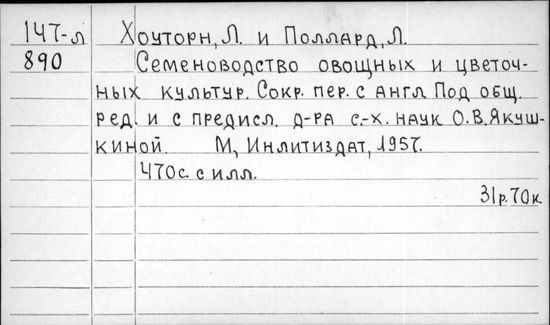 147-л Хоуторн, Л. и Поллард, Л.
890 Семеноводство овощных и цветоч-
ных культур. Сокр. пер. с англ. Под общ.
ред. и с предисл. д-ра с.-х. наук О.В. Якуш-
киной. М, Инлитиздат, 1957.
470 с. с илл.
31 р. 70 к.